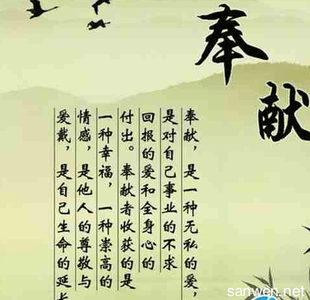 奉献
奉献，是一种无私的爱，
是对自己事业的不求
回报的爱和全身心的
付出。奉献者收获的是
一种幸福，一种崇高的
情感，是他人的尊敬与
爱戴，是自己生命的延长
sanwen.net